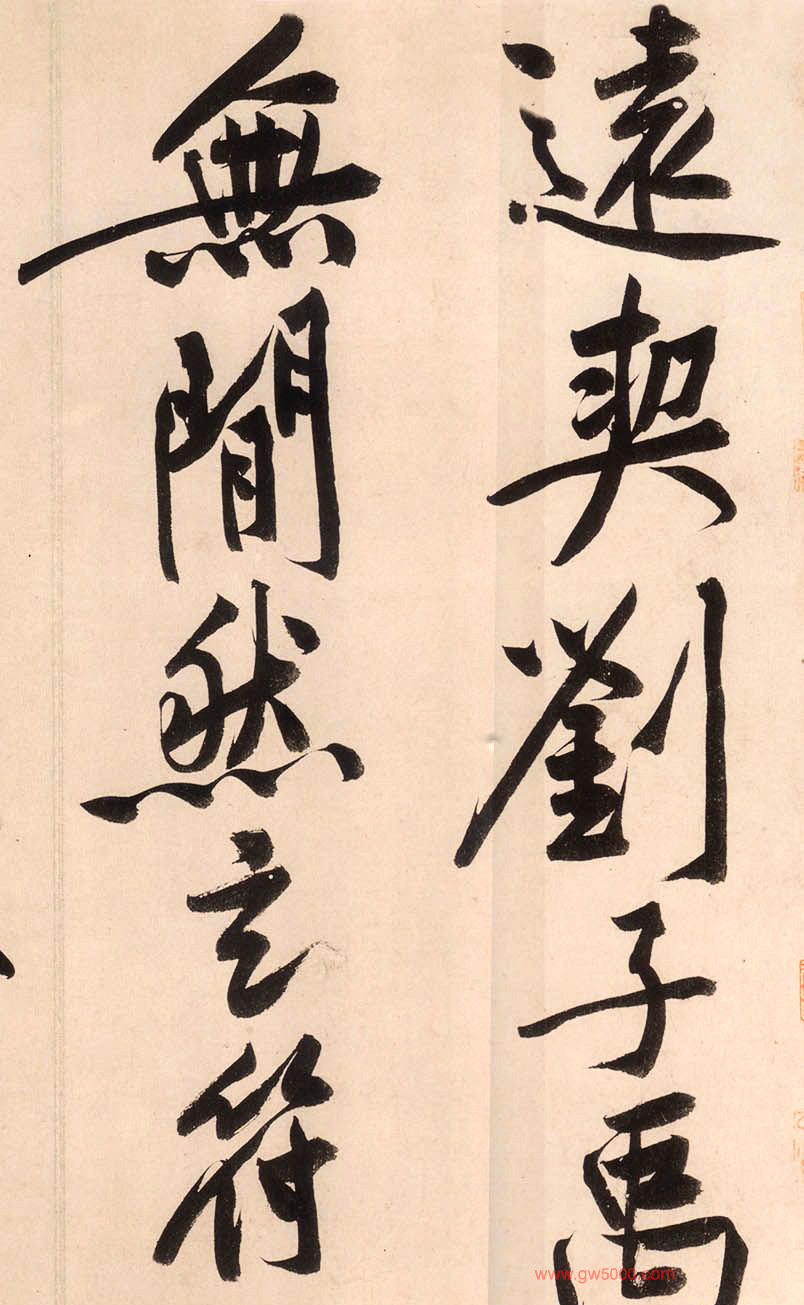 遠契劉子禹
無間然玄符
www.gw5000.com